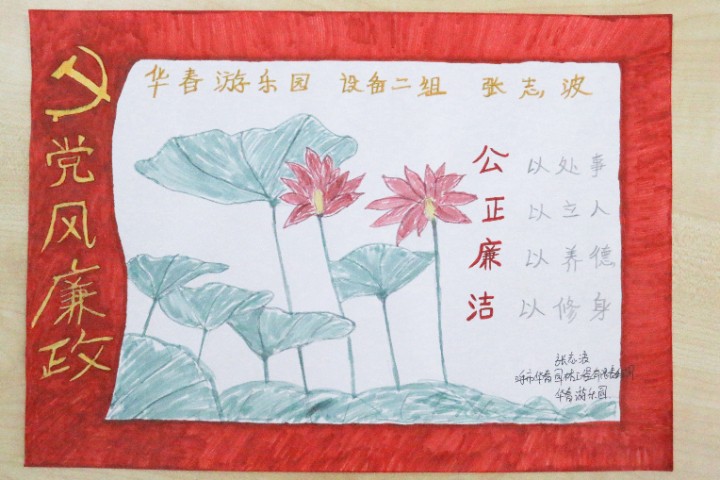 华春游乐园 设备二组 张志波
党风廉政
公以处事
正以立人
廉以养德
洁以修身
张志波
华春游乐园